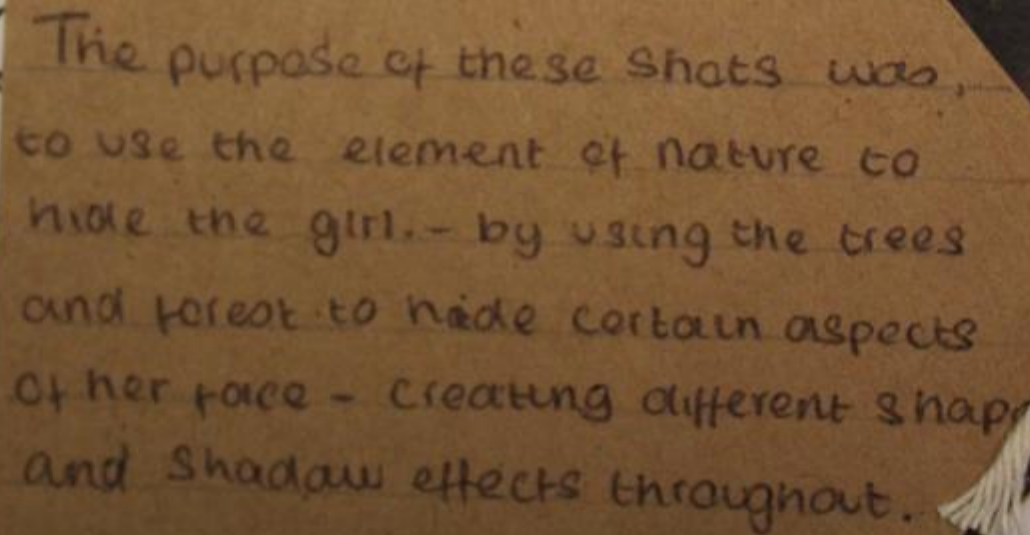 The purpose of these shots was,
to use the element of nature to
hide the girl. - by using the trees
and forest to hide certain aspects
of her face - creating different shap
and shadow effects throughout.